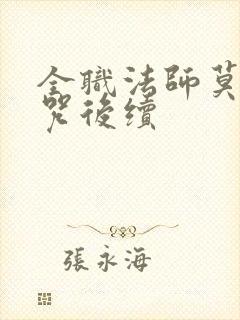 全職法師莫
咒後續
張永海